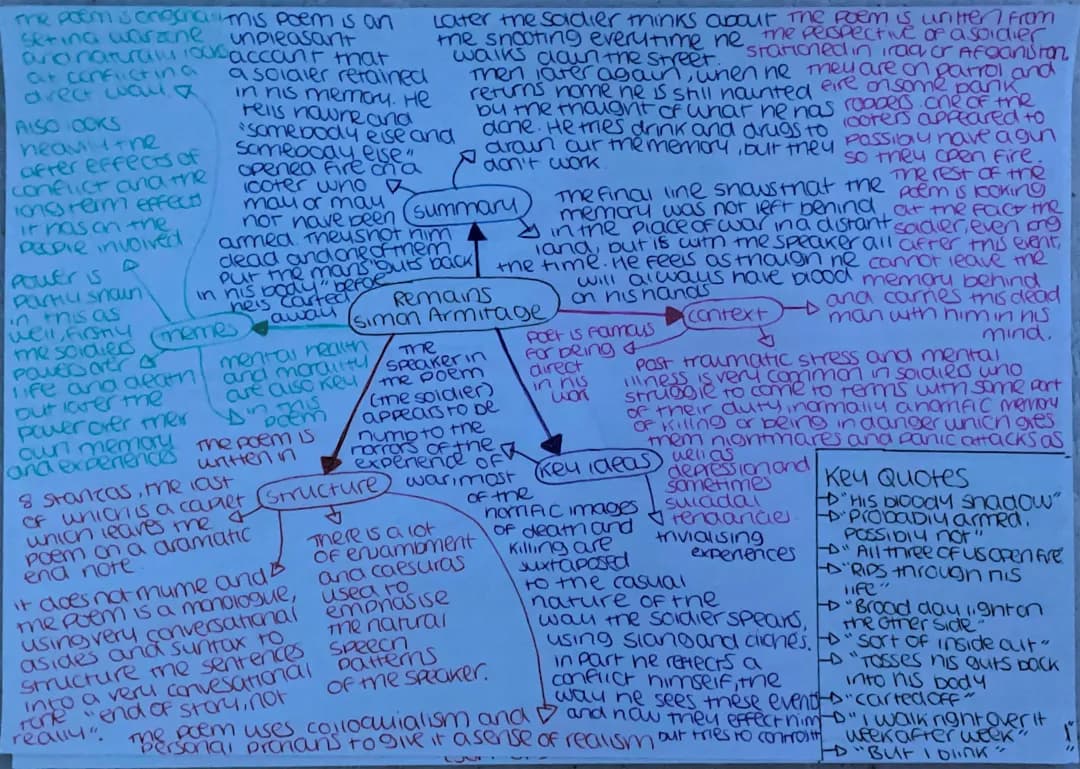 The poem is originally
set in a warzone
and naturally looks
at conflict in a
direct way.
Also looks
heavily the
after effects of
conflict and the
long term effect
it has on the
people involved
Power is
partly shown
in this as
well, firstly
the soldiers
power over
life and death
but later the
power over their
own memory
and experiences
Themes
mental health
and morality
are also key
in this
poem
This poem is an
unpleasant
account that
a soldier retained
in his memory. He
tells how he and
"somebody else and
somebody else"
opened fire on a
looter who
may or may
not have been
armed. They shot him
dead and one of them
put the mans "guts back
in his body" before
he is "carted
away
Summary
Later the soldier thinks about
the shooting everytime he
walks down the street.
Then later again, when he
returns home he is still haunted
by the thought of what he has
done. He tries drink and drugs to
drown out the memory, but they
don't work.
The final line shows that the
memory was not left behind
in the place of war in a distant
land, but is with the speaker all
the time. He feels as though he
will always have blood
on his hands
Remains
Simon Armitage
The poem is written from
the perspective of a soldier
stationed in Iraq or Afganistan.
They are on patrol and
fire on some bank
robbers. One of the
looters appeared to
possibly have a gun
so they open fire.
The rest of the
poem is looking
at the fact the
soldier, even after
this event,
cannot leave the
memory behind
and carries this dead
man with him in his
mind.
Context
Poet is famous
for being
direct
in his
work
Post traumatic stress and mental
illness is very common in soldiers who
struggle to come to terms with some part
of their duty, normally a horrific memory
of killing or being in danger which gives
them nightmares and panic attacks as
well as
depression and
sometimes
suicidal
tendancies.
Structure
The poem is
written in
8 stanzas, the last
of which is a couplet
which leaves the
poem on a dramatic
end note.
It does not rhyme and
the poem is a monologue,
using very conversational
asides and syntax to
structure the sentences
into a very convesational
tone "end of story, not
really".
There is a lot
of enjambment
and caesuras
used to
emphasise
the natural
speech
patterns
of the speaker.
The poem uses colloquialism and
personal pronouns to give it a sense of realism
Key ideas
The
speaker in
the poem
(the soldier)
appears to be
numb to the
horrors of the
experience of
war, most
of the
horrific images
of death and
killing are
juxtaposed
to the casual
nature of the
way the soldier spears,
using slang and clichés.
in part he reflects a
conflict himself, the
way he sees these event
and how they effect him
but tries to control it
trivialising
experiences
Key Quotes
"His bloody shadow"
"Probably armed.
possibly not"
"All three of us open fire"
"Rips through his
life"
"Broad day light on
the other side"
"sort of inside out"
"Tosses his guts back
into his body
"carted off"
"I walk right over it
week after week"
"But I blink"